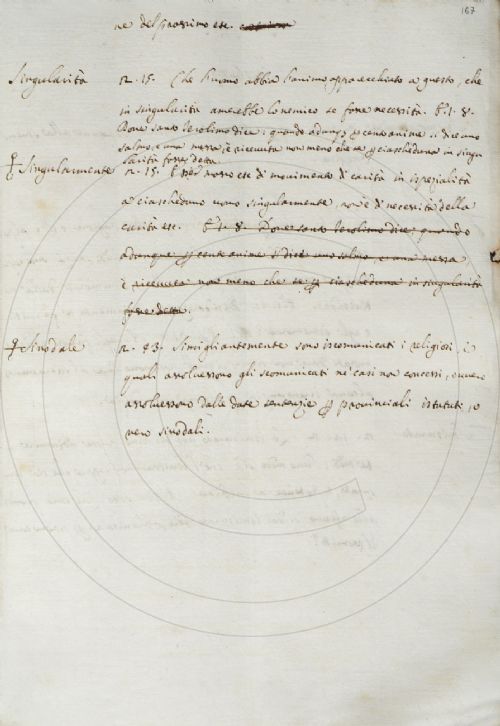 167
ne del prossimo etc.
Singularità
n. 15. Che l'uomo abbia l'animo apparecchiato a questo, che
in singularità amerebbe lo nemico se fosse necessità. E t. 8.
Dove santo Ierolimo dice: quando adunque per cento anime si dice uno
salmo, o una messa, è ricevuta non meno che se per ciascheduna in singu
larità fosse detta.
Singularmente
n. 15. E per
etc di movimento di carità in ispezialità
a ciascheduno uomo singularmente, non è di necessità della
carità etc. E t. 8. Dove santo Ierolimo dice: quando
adunque per cento anime si dice uno salmo, o una messa
è ricevuta non meno che se per ciascheduna in singularità
fosse detta.
Sinodale
n. 83. Simigliantemente sono iscomunicati i religiosi, i
quali assolvessono gli scomunicati ne' casi non concessi, ovvero
assolvessono dalle date sentenzie per provinciali istatuti, o
vero sinodali.